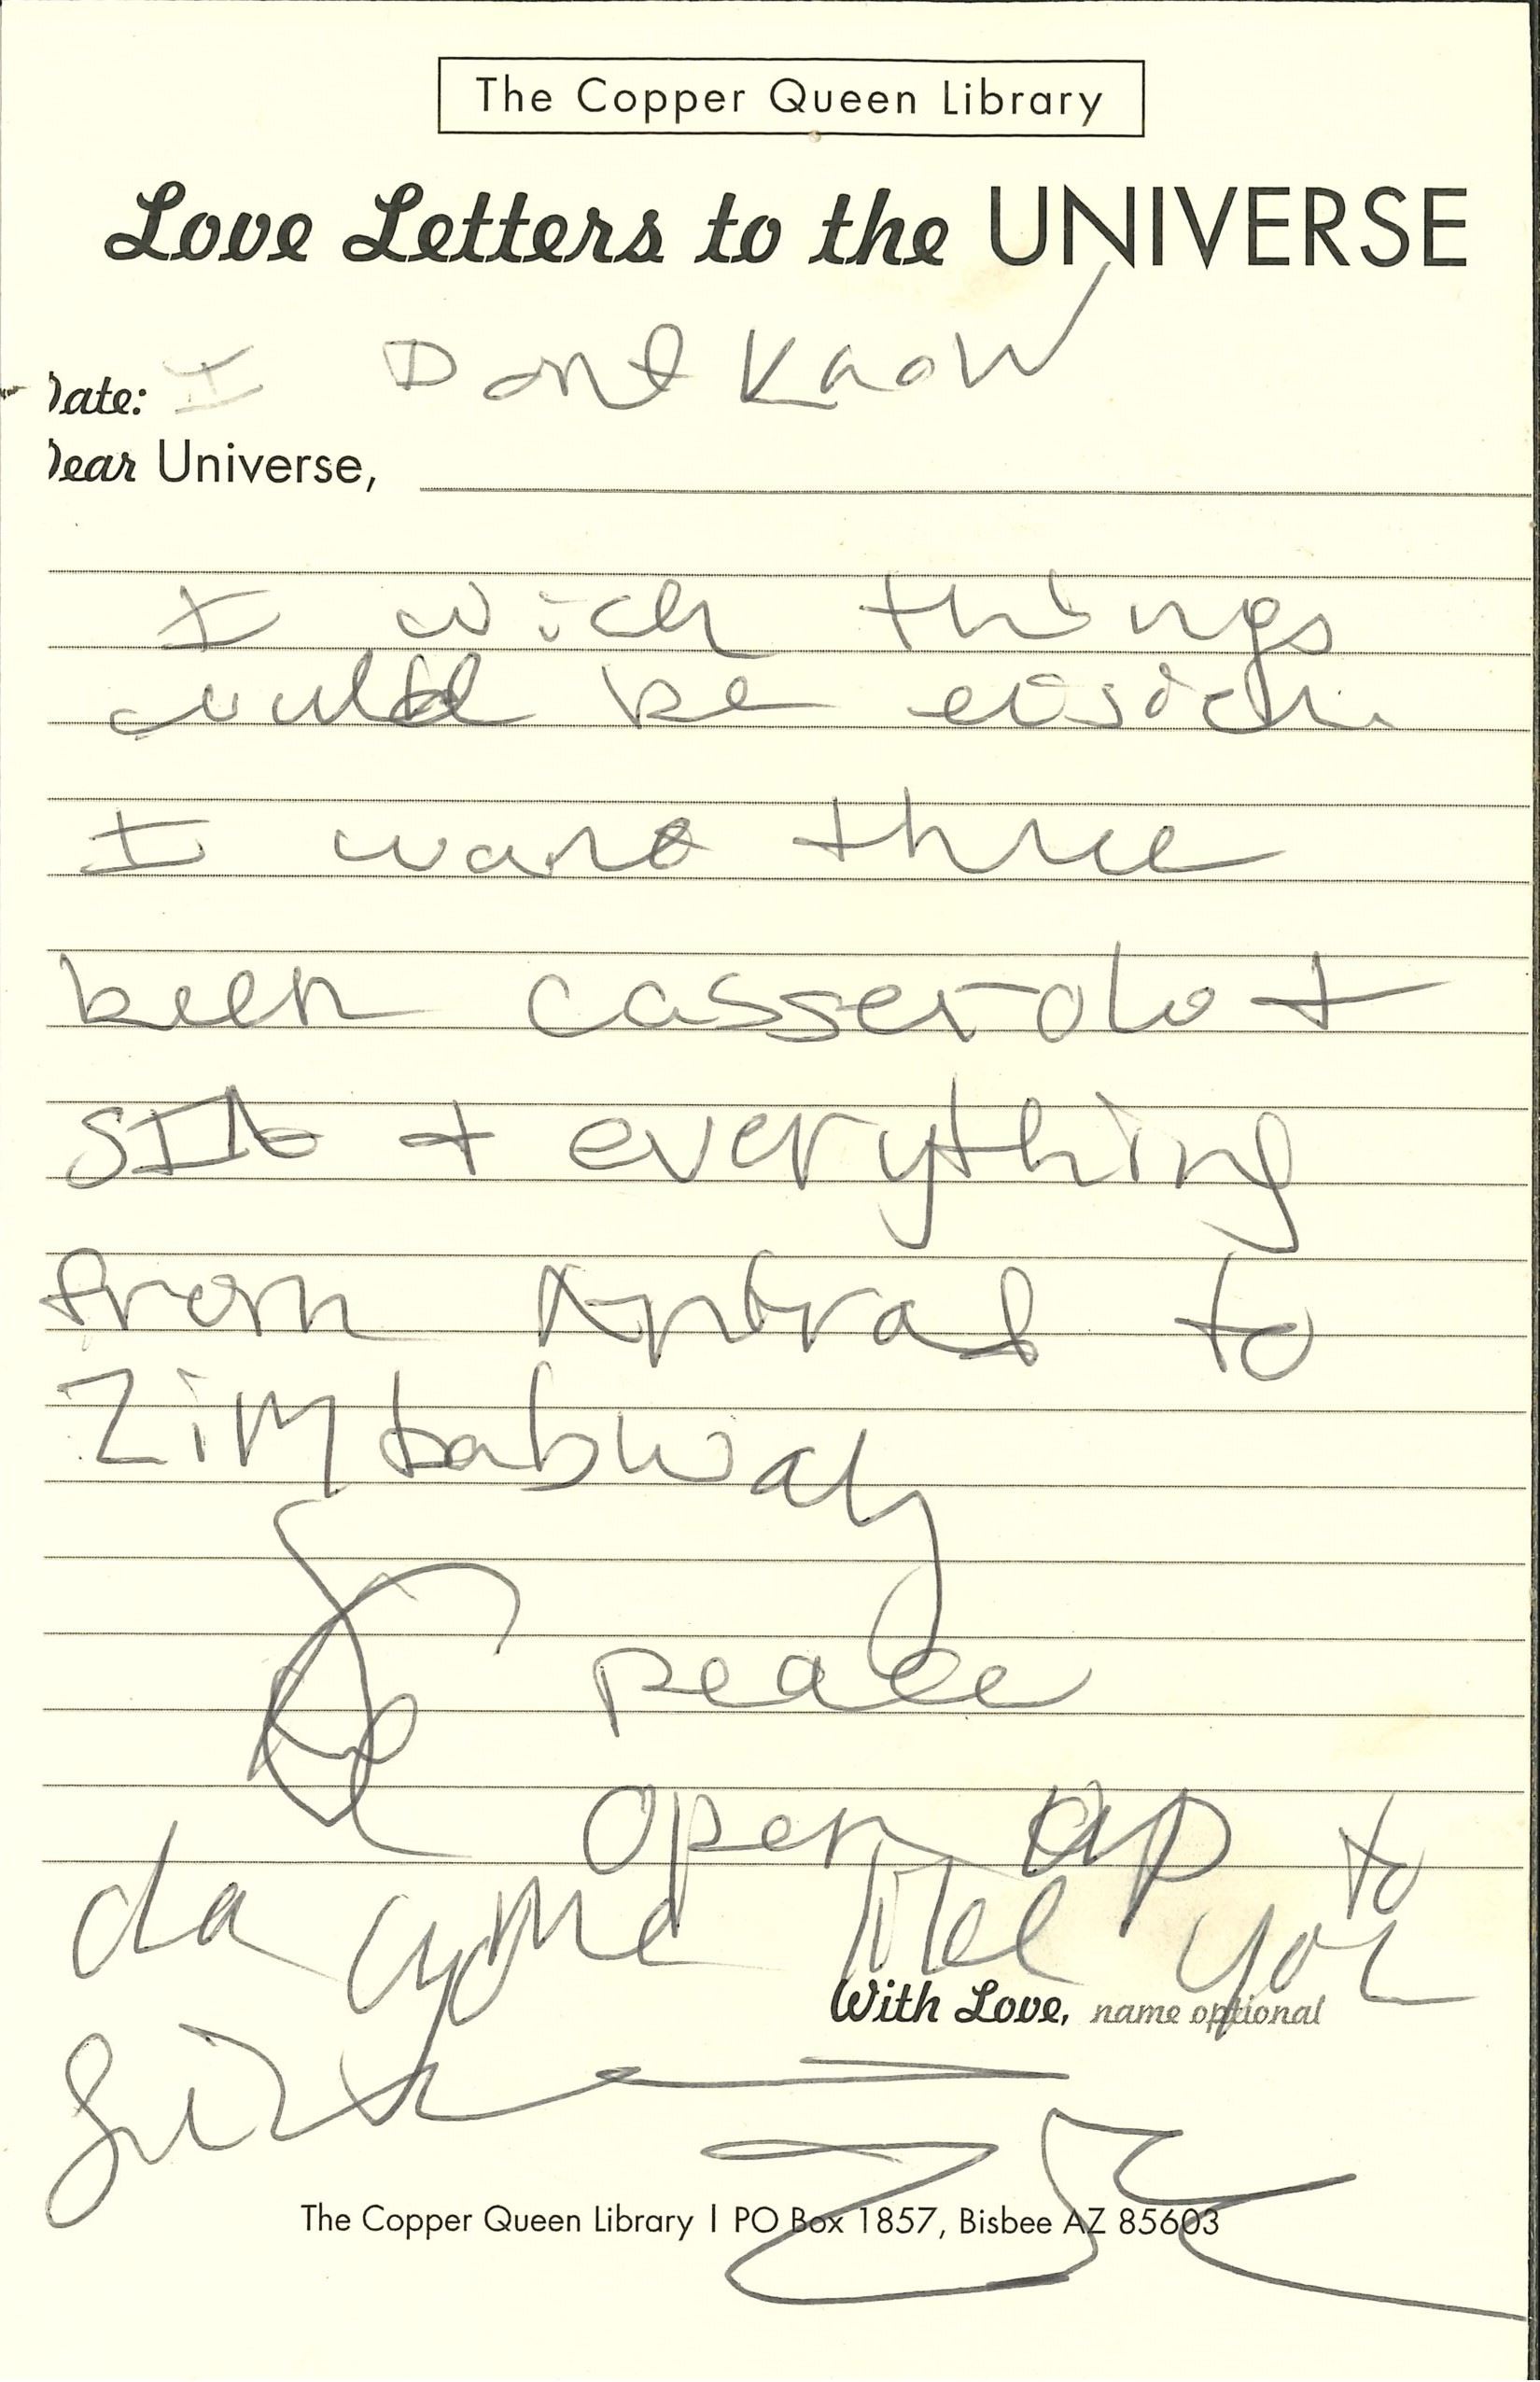 The Copper Queen Library
Love Letters to the UNIVERSE
Date: I Dont Know
Dear Universe,
I wich things
could be
I want three
been casserole +
+ everything
from to
Zimbabway
peace
open up to
da you
With Love, name optional
The Copper Queen Library | PO Box 1857, Bisbee AZ 85603